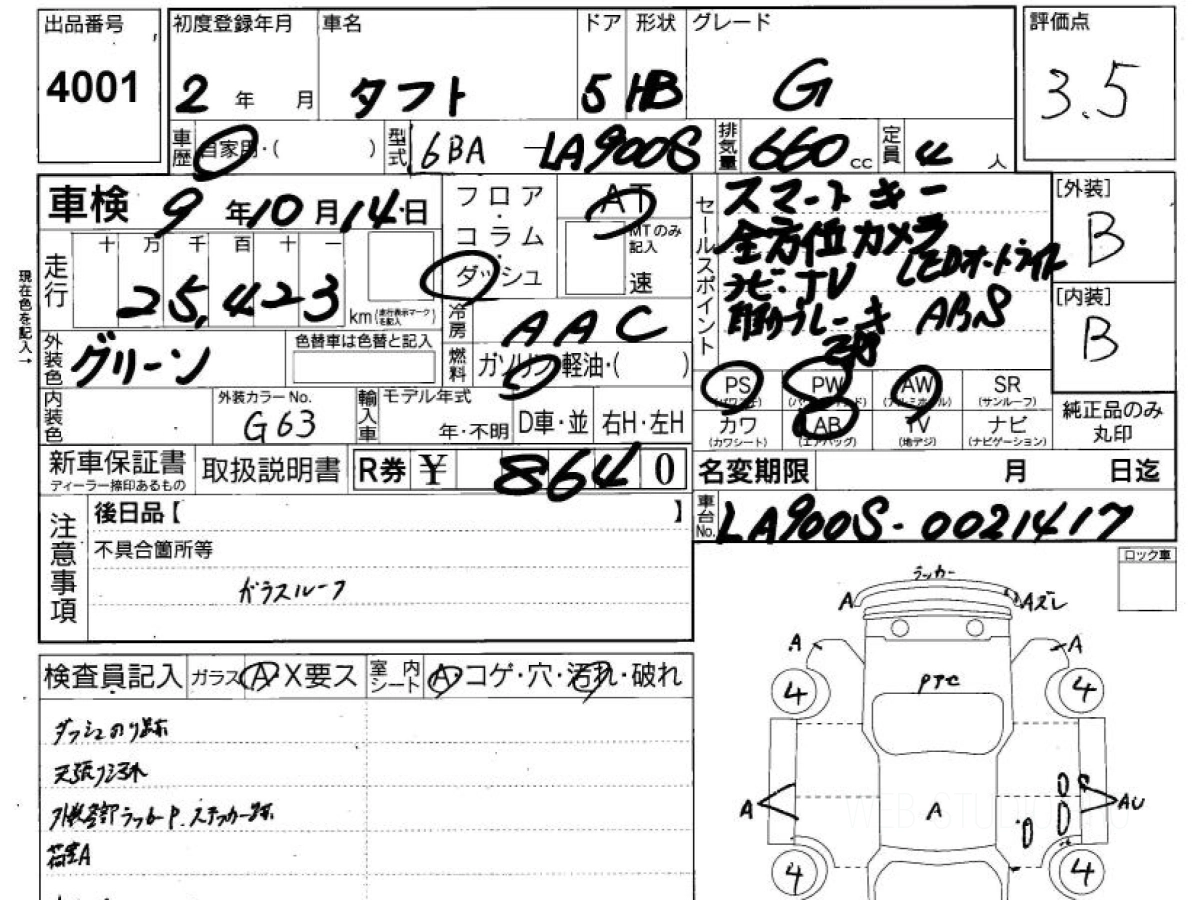 出品番号 初度登録年月 車名 ドア 形状 グレード 評価点
4001 2年 月 タフト 5 HB G 3.5
車歴 自家用・( ) 型式 6BA-LA900S 排気量 660cc 定員 4人
車検 9年10月14日 フロア・コラム・ダッシュ AT MTのみ記入 速
走行 十 万 千 百 十 一
25,423 km (走行表示マークを記入)
現在色を記入→
冷房 AAC
外装色 グリーン 色替車は色替と記入
燃料 ガソリン・軽油・( )
セールスポイント
スマートキー
全方位カメラ
LEDオートライト
ナビ・TV
ブレーキ ABS
[外装]
B
[内装]
B
純正品のみ丸印
内装色 外装カラーNo. G63 輸入車 モデル年式 年・不明 D車・並 右H・左H
PS PW AW SR
(パワステ) (パワーウインド) (アルミホイル) (サンルーフ)
カワ AB TV ナビ
(カワシート) (エアバッグ) (地デジ) (ナビゲーション)
新車保証書 ディーラー捺印あるもの 取扱説明書 R券 ¥ 8640
名変期限 月 日迄
車台No. LA900S-0021417
注意事項
後日品【 】
不具合箇所等
ガラスルーフ
ロック車
検査員記入 ガラス A・X要ス 室内シート A・コゲ・穴・汚れ・破れ
ダッシュのり跡
天張り汚れ
ラッカーP.ステッカー跡
荷室A
ラッカー
A Aズレ
A A
4 4
PTC
A A AU
4 4